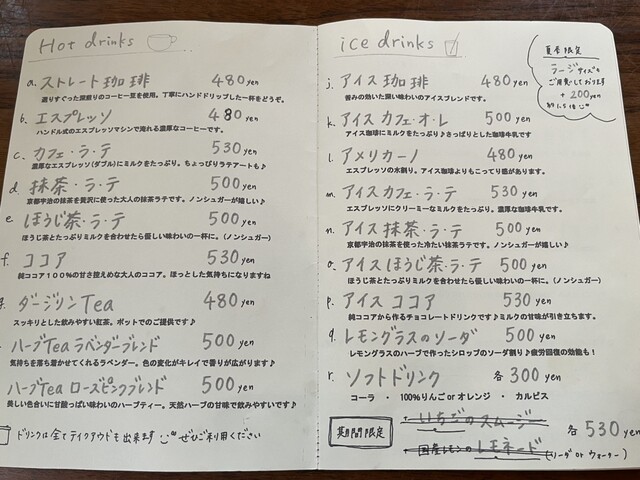 Hot drinks
a. ストレート珈琲 480yen
選りすぐった深煎りのコーヒー豆を使用。丁寧にハンドドリップした一杯をどうぞ。
b. エスプレッソ 480yen
ハンドル式のエスプレッソマシンで淹れる濃厚なコーヒーです。
c. カフェ・ラ・テ 530yen
濃厚なエスプレッソ(ダブル)にミルクをたっぷり。ちょっぴりラテアートも♪
d. 抹茶・ラ・テ 500yen
京都宇治の抹茶を贅沢に使った大人の抹茶ラテです。ノンシュガーが嬉しい♪
e ほうじ茶・ラ・テ 500yen
ほうじ茶とたっぷりミルクを合わせたら優しい味わいの一杯に。(ノンシュガー)
f. ココア 530yen
純ココア100%の甘さ控えめな大人のココア。ほっとした気持ちになりますね
ダージリンTea 480yen
スッキリとした飲みやすい紅茶。ポットでのご提供です♪
ハーブTea ラベンダーブレンド 500yen
気持ちを落ち着かせてくれるラベンダー。色の変化がキレイで香りが広がります♪
ハーブTea ローズピンクブレンド 500yen
美しい色合いに甘酸っぱい味わいのハーブティー。天然ハーブの甘味で飲みやすいです♪
ドリンクは全てテイクアウトも出来ます ぜひご利用ください
ice drinks
夏季限定
ラージサイズも
ご用意しております
+200yen
約1.5倍
j. アイス珈琲 480yen
苦みの効いた深い味わいのアイスブレンドです。
k. アイスカフェ・オ・レ 500yen
アイス珈琲にミルクをたっぷり♪さっぱりとした珈琲牛乳です
l. アメリカーノ 480yen
エスプレッソの水割り。アイス珈琲よりもこってり感があります。
m. アイスカフェ・ラ・テ 530yen
エスプレッソにクリーミーなミルクをたっぷり。濃厚な珈琲牛乳です。
n. アイス抹茶・ラ・テ 500yen
京都宇治の抹茶を使った冷たい抹茶ラテです。ノンシュガーが嬉しい♪
o. アイスほうじ茶・ラ・テ 500yen
ほうじ茶とたっぷりミルクを合わせたら優しい味わいの一杯に。(ノンシュガー)
p. アイスココア 530yen
純ココアから作るチョコレートドリンクです♪ミルクの甘味が引き立ちます。
q. レモングラスのソーダ 500yen
レモングラスのハーブで作ったシロップのソーダ割り♪疲労回復の効能も!
r. ソフトドリンク 各300yen
コーラ ・ 100%りんごorオレンジ ・ カルピス
期間限定
・いちごのスムージー
・国産レモンのレモネード
各530yen
(ソーダ or ウォーター)